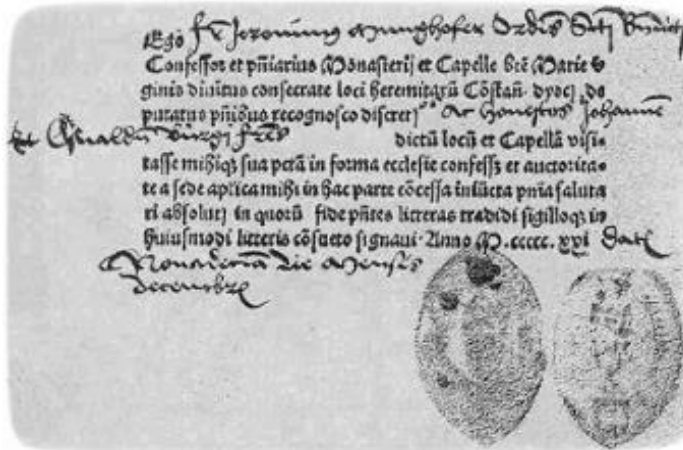 Ego fr Jeronimus Munghofer Ordis Scti Bndicti
Confessor et pñiarius Monasterij et Capelle bte Marie v
ginis diuitus consecrate loci heremitarũ Cõstañ. dyoc; de
putatus pñibus recognosco discret; Ac honestos Johannẽ
Et Oswaldũ Bürgi fres dictũ locũ et Capellã visi⸗
tasse mihiq; sua pctã in forma ecclesie confess; et auctorita⸗
te a sede aplica mihi in hac parte cõcessa iniũcta pnia saluta
ri absolut; in quorũ fide pñtes litteras tradidi sigilloq; in
huiusmodi litteris cõsueto signaui. Anno M. ccccc. xxi Dat
Nonadecima die Mensis
decembr